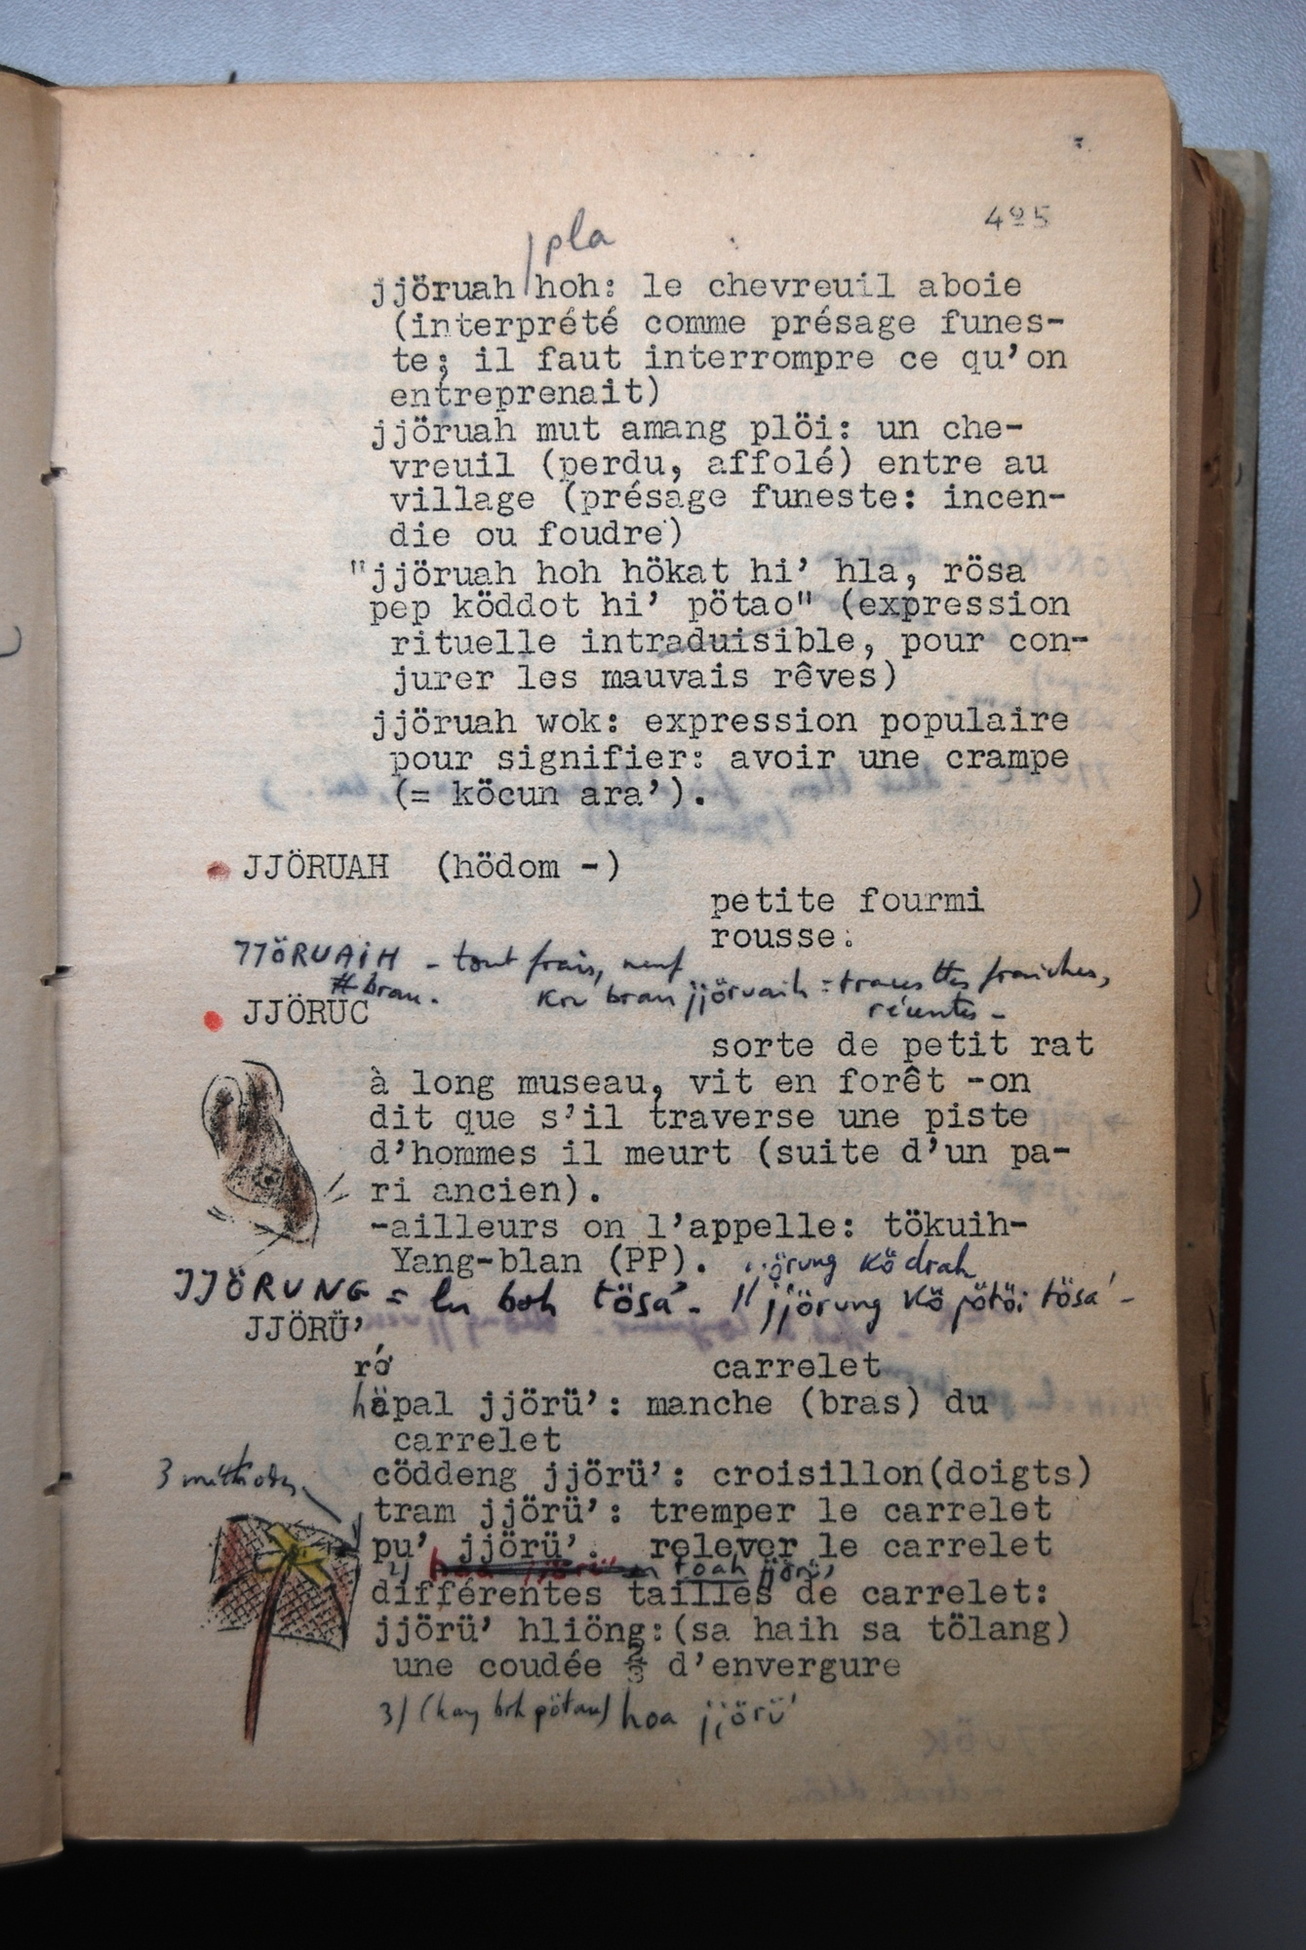 425
pla
jjöruah hoh: le chevreuil aboie
(interprété comme présage funes-
te; il faut interrompre ce qu'on
entreprenait)
jjöruah mut amang plöi: un che-
vreuil (perdu, affolé) entre au
village (présage funeste: incen-
die ou foudre)
"jjöruah hoh hökat hi' hla, rösa
pep köddot hi' pötao" (expression
rituelle intraduisible, pour con-
jurer les mauvais rêves)
jjöruah wok: expression populaire
pour signifier: avoir une crampe
(= köcun ara').
JJÖRUAH (hödom -)
petite fourmi
rousse.
JJÖRUAiH - tout frais, neuf
# bran. jjöruaih = traces ttes fraiches,
récentes -
JJÖRUC
sorte de petit rat
à long museau, vit en forêt -on
dit que s'il traverse une piste
d'hommes il meurt (suite d'un pa-
ri ancien).
-ailleurs on l'appelle: tökuih-
Yang-blan (PP). jjörung ködrah
JJÖRUNG = boh tösa' - // jjörung kö pötöi tösa' -
JJÖRÜ'
ró carrelet
höpal jjörü': manche (bras) du
carrelet
cöddeng jjörü': croisillon(doigts)
3 méthodes
tram jjörü': tremper le carrelet
pu' jjörü': relever le carrelet
2) roah jjörü'
différentes tailles de carrelet:
jjörü' hliöng:(sa haih sa tölang)
une coudée 2/3 d'envergure
3) hoa jjörü'